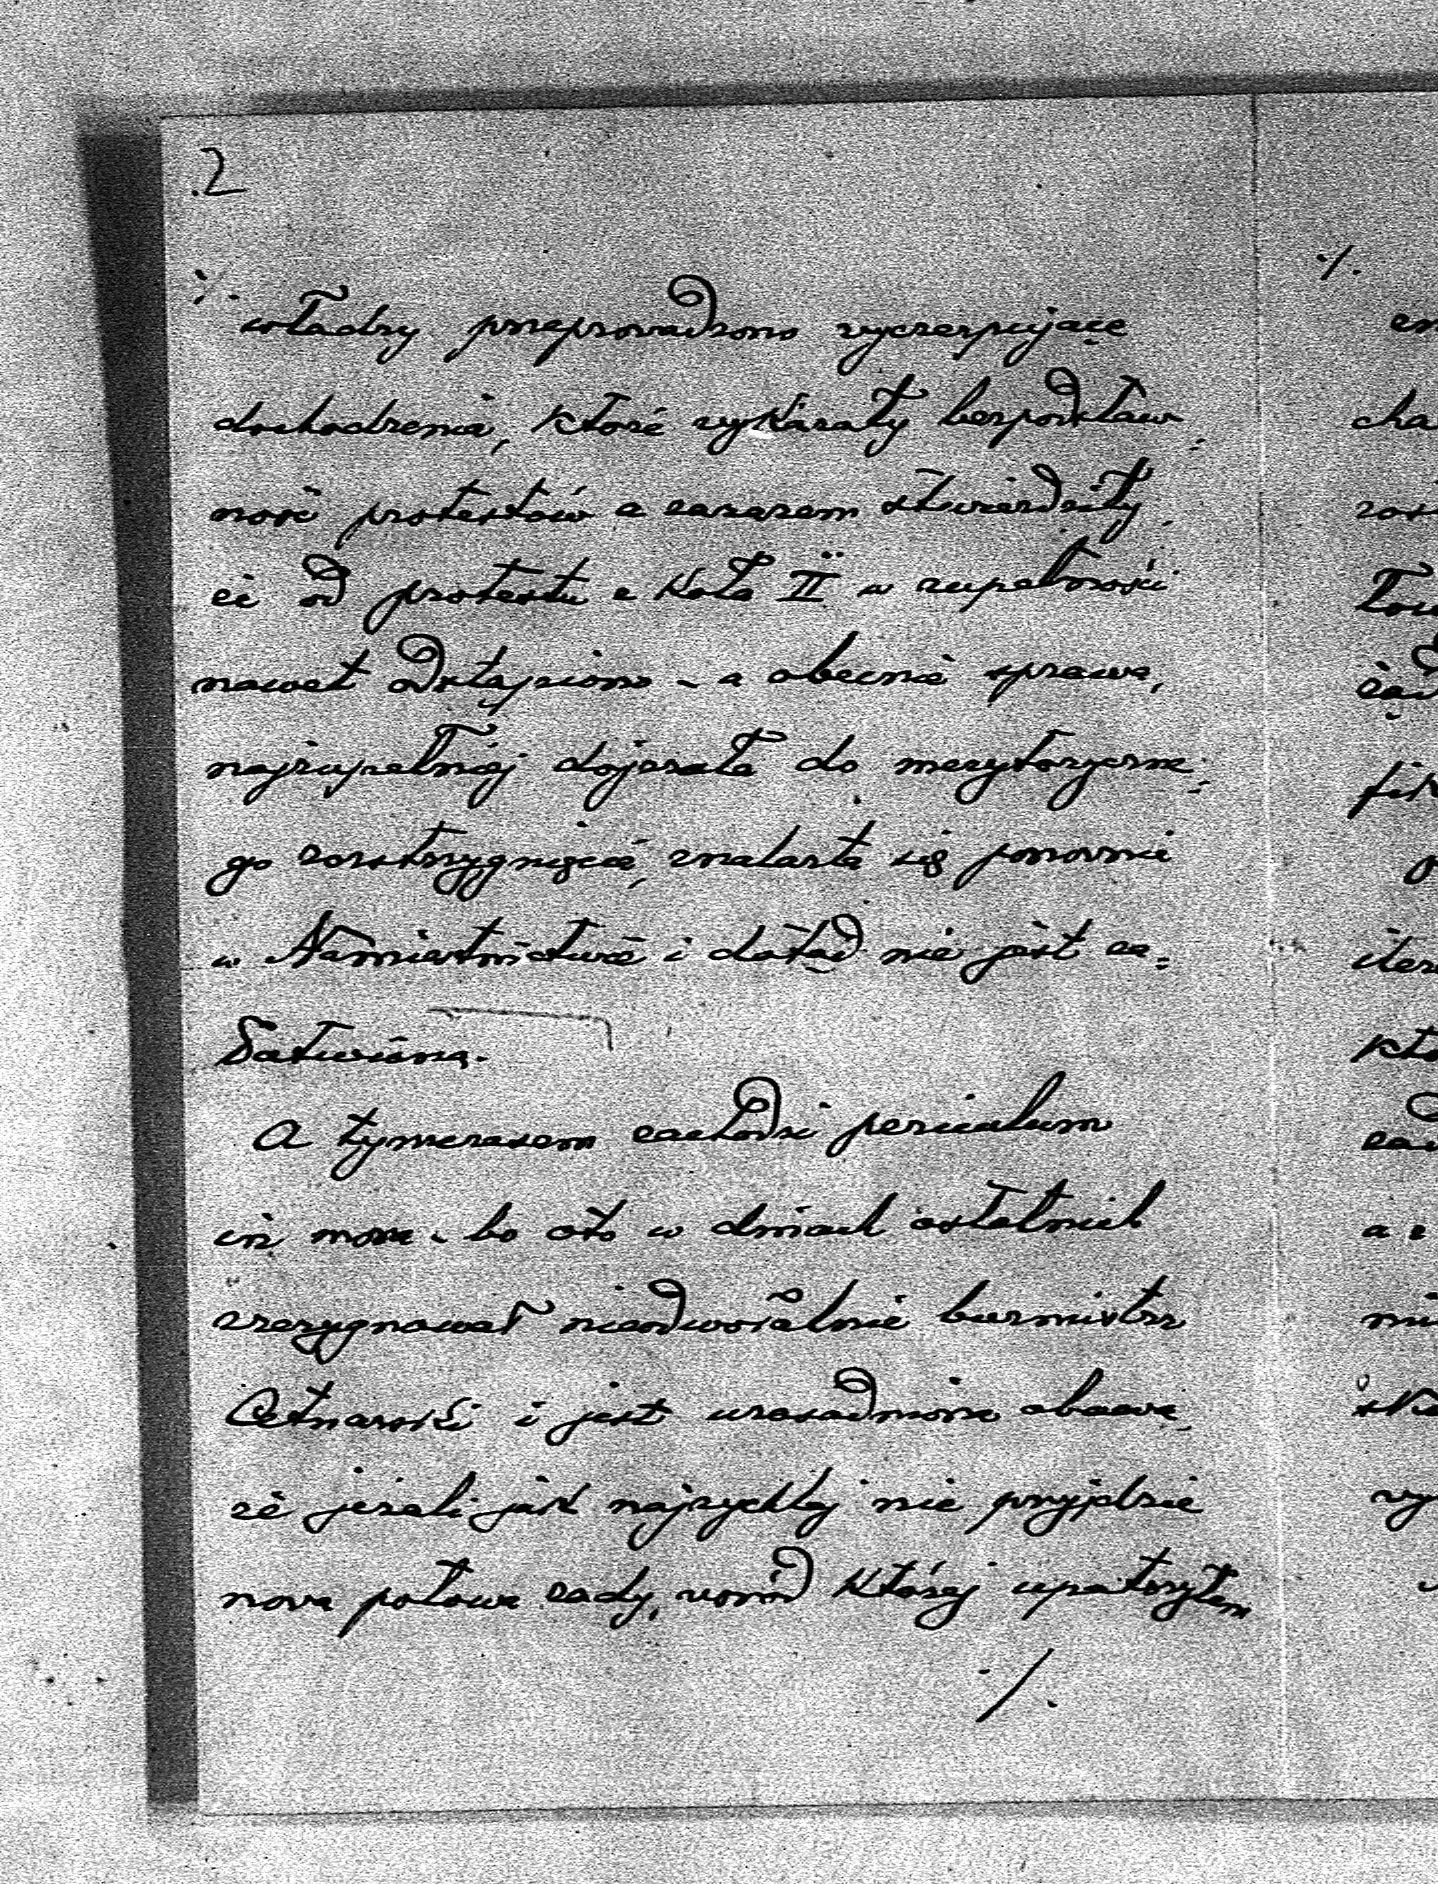 2
./.
władzy przeprowadzono wyczerpujące
dochodzenia, które wykazały bezpodstaw-
ność protestów a zarazem stwierdziły,
że od protestu z Koła II w zupełności
nawet odstąpiono - a obecnie sprawa,
najzupełniej dojrzała do merytoryczne-
go rozstrzygnięcia, znalazła się ponownie
w Namiestnictwie i dotąd nie jest za=
łatwioną.
A tymczasem zachodzi periculum
in mora - bo oto w dniach ostatnich
zrezygnował nieodwołalnie burmistrz
Cetnarski i jest uzasadniona obawa,
że jeżeli jak najrychlej nie przyjdzie
nowa połowa rady, wśród której upatrzyłem
./.
./.
cha
iter